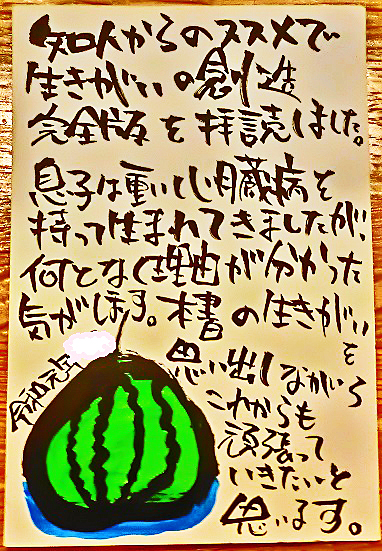 知人からのススメで
生きがいの創造
完全版を拝読しました。
息子は重い心臓病を
持って生まれてきましたが、
何となく理由が分かった
気がします。本書の生きがいを
思い出しながら
これからも
頑張って
いきたいと
思います。
令和元年